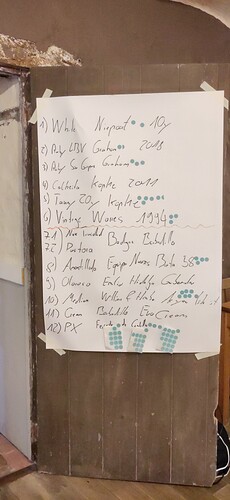 1) White Niepoort 10y
2) Ruby LBV Graham 2018
3) Ruby Six Grapes Grahams
4) Colheita Kopke 2011
5) Tawny 20y Kopke
6) Vintage Warres 1994
71)
72) Pastora Bodega Barbadillo
8) Amontillado Equipo Navazos Bota 38
9) Oloroso Emilio Hidalgo Gobernador
10) Medium Williams & Humbert
11) Cream Barbadillo Eva Cream
12) PX Fernando de Castilla